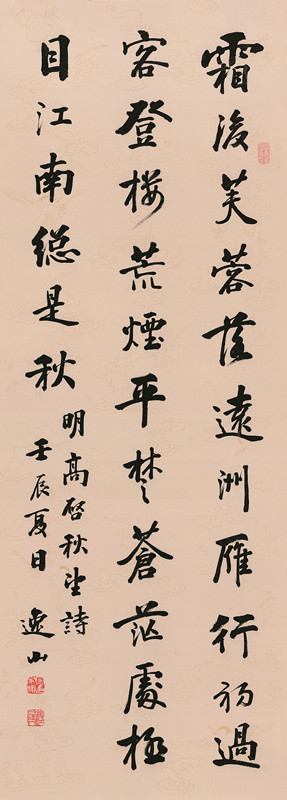 霜後芙蓉落遠洲雁行初過
客登樓荒煙平楚蒼茫處極
目江南總是秋
明高啓秋望詩
壬辰夏日 逸山